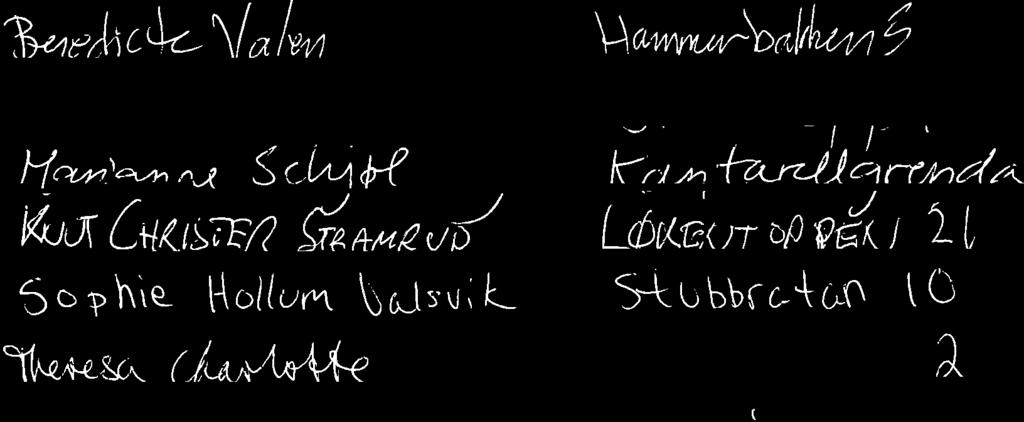 Benedicte Valen Hammerbakken 5
Marianne Schjøl Kantarellgrenda
KNUT CHRISTER STRAMRUD 21
Sophie Hollum Valsvik Stubbratan 10
Theresa Charlotte 2